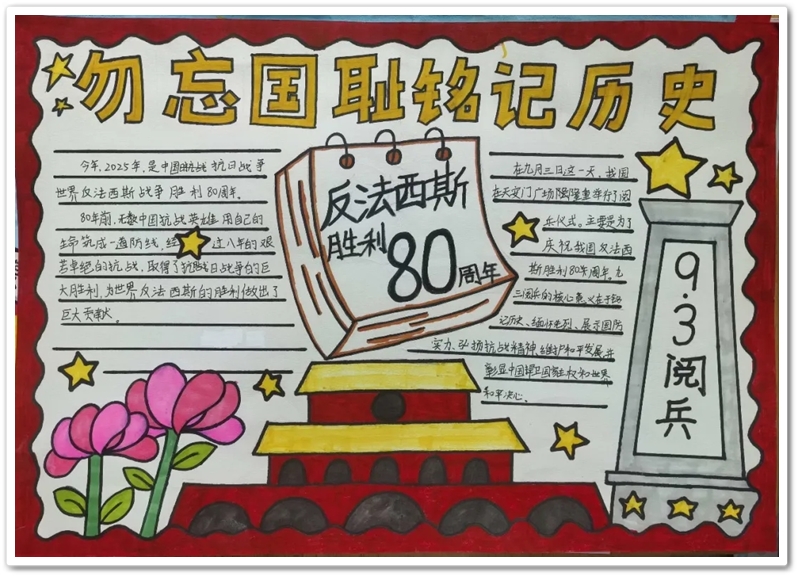 勿忘国耻铭记历史
今年,2025年,是中国抗战抗日战争
世界反法西斯战争胜利80周年。
80年前,无数中国抗战英雄用自己的
生命筑成一道防线,经 过八年的艰
苦卓绝的抗战,取得了抗战日战争的巨
大胜利,为世界反法西斯的胜利做出了
巨大贡献。
反法西斯
胜利
80周年
在九月三日这一天,我国
在天安门广场隆隆重举行了阅
兵仪式。主要是为了
庆祝我国反法西
斯胜利80年周年。
三阅兵的核心意义在于铭
记历史、缅怀先烈、展示国防
实力、弘扬抗战精神、维护和平发展,并
彰显中国捍卫国家主权和世界
和平决心。
9.3阅兵